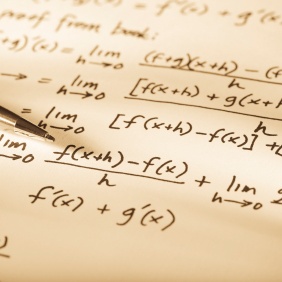 = f'(x) + g'(x
proof from book:
+g)'(x) = lim h→0 (f+g)(x+h) − (f
→ = lim h→0 [f(x+h) + g(x+h / h
= lim h→0 [f(x+h)−f(x)] +[ / h
lim h→0 f(x+h) − f(x) / h + lim h→0
f'(x) + g'(x)